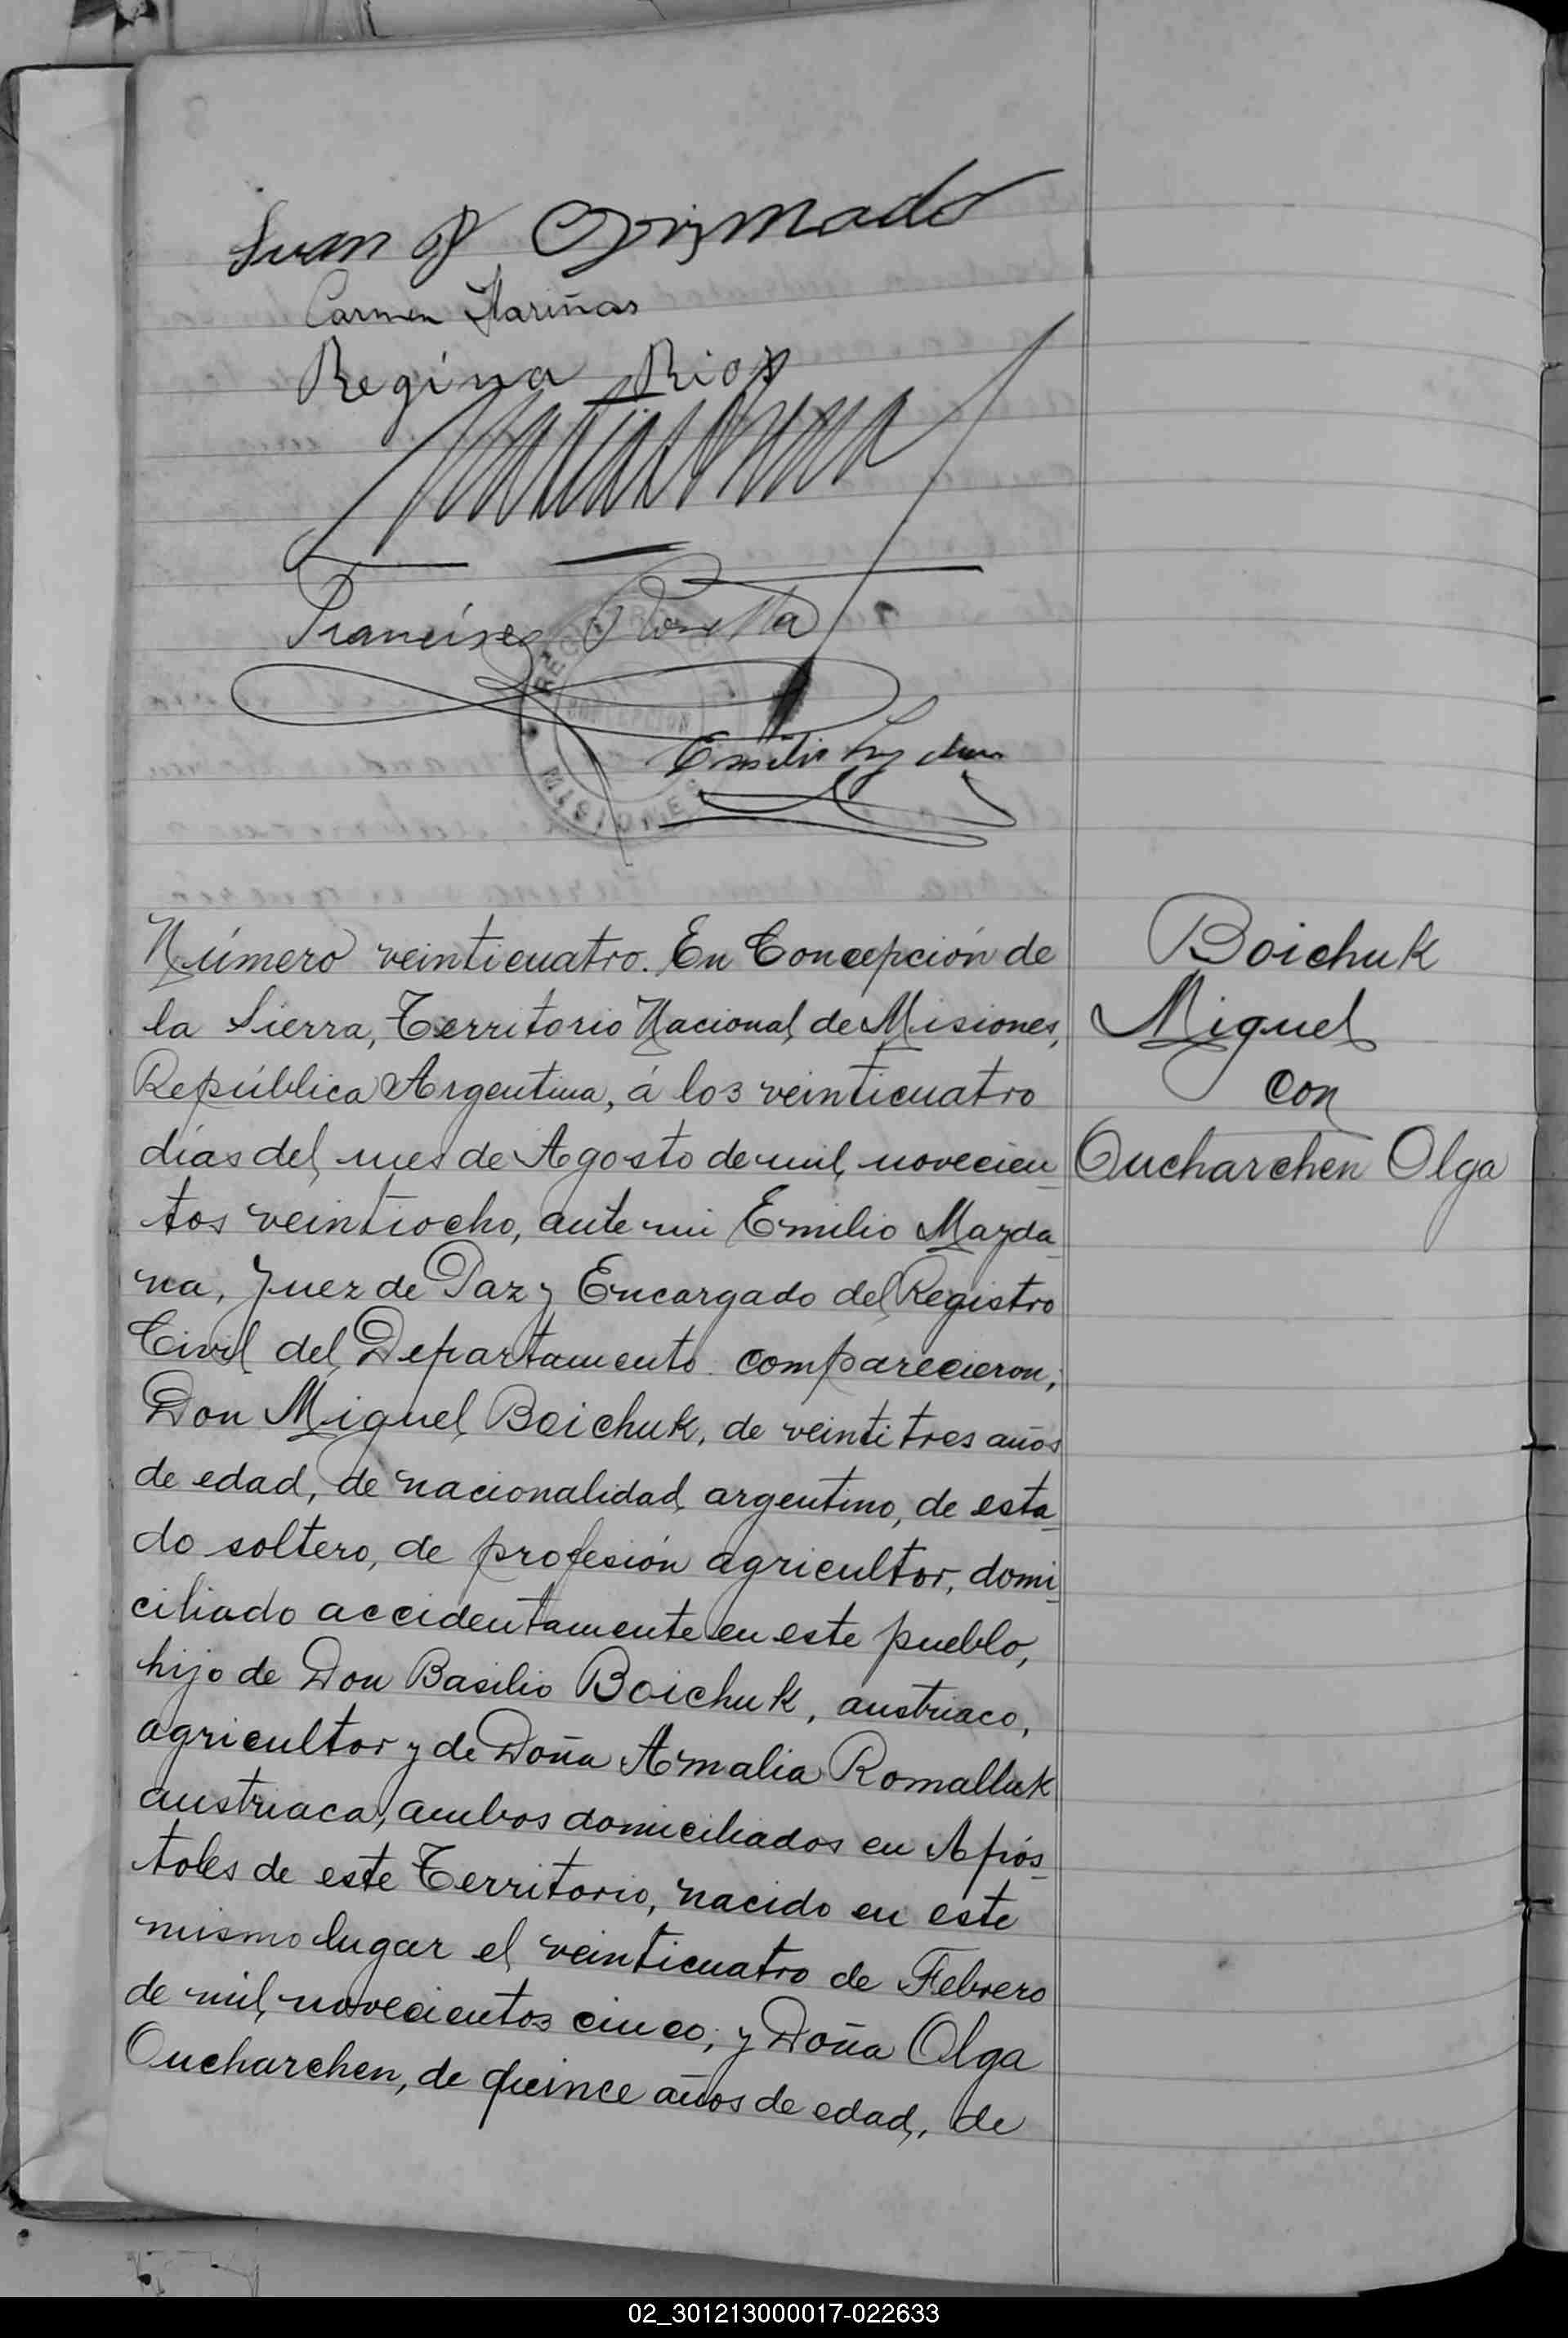 Juan
Carmen Fariñas
Regina Rios
Francisco
REGISTRO
CONCEPCION
MISIONES
Emilio
Número veinticuatro. En Concepción de
la Sierra, Territorio Nacional de Misiones,
República Argentina, á los veinticuatro
días del mes de Agosto de mil novecien-
tos veintiocho, ante mi Emilio Mazda-
na, Juez de Paz y Encargado del Registro
Civil del Departamento comparecieron;
Don Miguel Boichuk, de veintitres años
de edad, de nacionalidad argentino, de esta-
do soltero, de profesión agricultor, domi-
ciliado accidentamente en este pueblo,
hijo de Don Basilio Boichuk, austriaco,
agricultor y de Doña Amalia Romalluk
austriaca, ambos domiciliados en Após-
toles de este Territorio, nacido en este
mismo lugar el veinticuatro de Febrero
de mil novecientos cinco; y Doña Olga
Oucharchen, de quince años de edad, de
Boichuk
Miguel
con
Oucharchen Olga
02_301213000017-022633